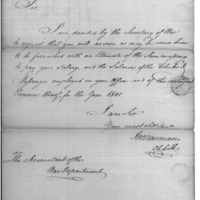 Sir
I am directed by the Secretary of War
to request that you will as soon as may be cause him
to be furnished with an Estimate of the Sum necessary
to pay your Salary, and the Salaries of the Clerks &
employed in your Office and of the
for the Year 1801
I am Sir
Your most obd Serv
The Accountant of the
War Department